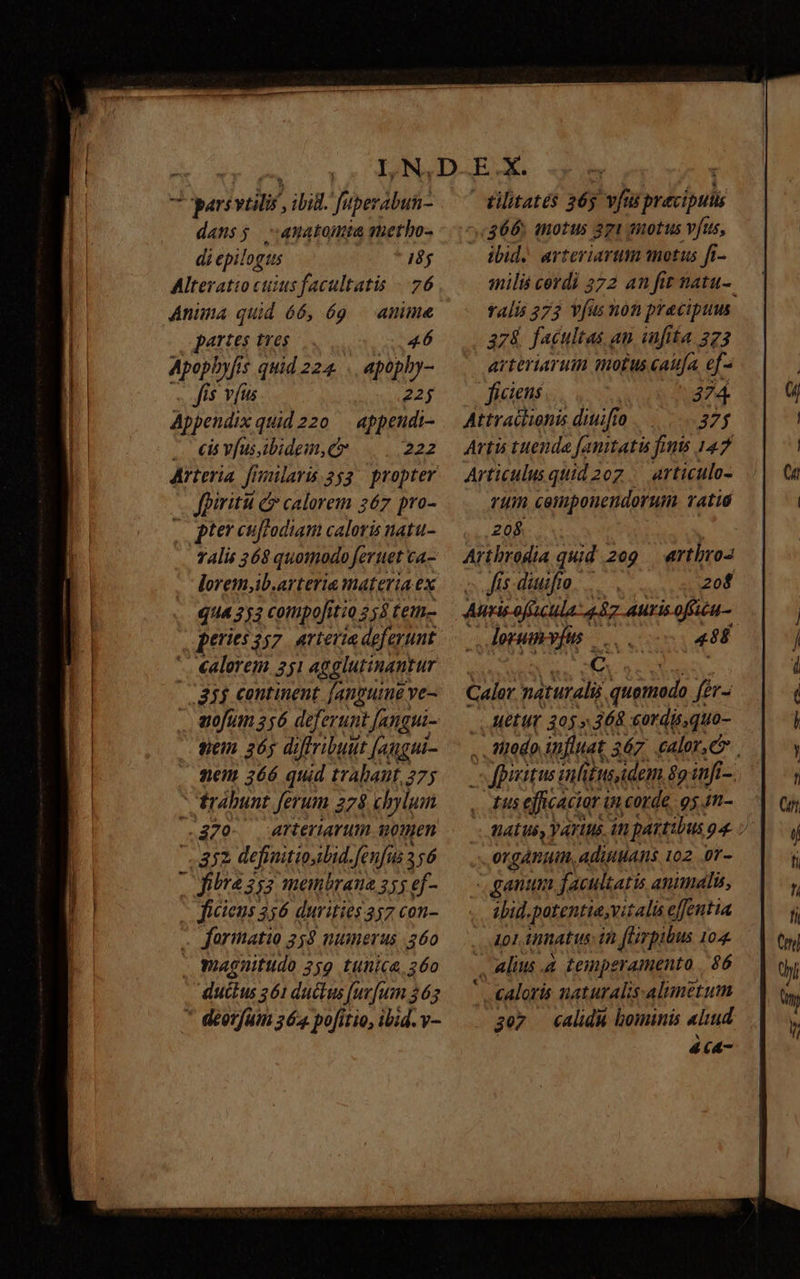 INDEX.
pars vtilis, ibid. superabun-
dans 5 anatomiæ metho-
di epilogus 185
Alteratio cuius facultatis 76
Anima quid 66, 69 animæ
partes tres 46
Apophysis quid 224 apophy-
sis vsus 225
Appendix quid 220 appendi-
cis vsus, ibidem, & 222
Arteria similaris 353 propter
spiritū & calorem 367 pro-
pter custodiam caloris natu-
ralis 368 quomodo seruet ca-
lorem, ib. arteriæ materia ex
qua 353 compositio 358 tem-
peries 357 arteriæ deferunt
calorem 351 agglutinantur
355 continent sanguinē ve-
nosum 356 deferunt sangui-
nem 365 distribuūt sangui-
nem 366 quid trahant 375
trahunt serum 378 chylum
370 arteriarum nomen
352 definitio, ibid. sensus 356
fibræ 353 membrana 355 ef-
ficiens 356 durities 357 con-
formatio 358 numerus 360
magnitudo 359 tunica 360
ductus 361 ductus sursum 363
deorsum 364 positio, ibid. v-
tilitates 365 vsus præcipuus
366 motus 371 motus vsus,
ibid. arteriarum motus si-
milis cordi 372 an sit natu-
ralis 373 vsus non præcipuus
378 facultas an insita 373
arteriarum motus causa ef-
ficiens 374
Attractionis diuisio 375
Artis tuendæ sanitatis finis 147
Articulus quid 207 articulo-
rum componendorum ratio
208
Arthrodia quid 209 arthro-
sis diuisio 208
Auris ossicula 487 auris ossicu-
lorum vsus 488
C.
Calor naturalis quomodo ser-
uetur 305, 368 cordis, quo-
modo influat 367 calor, &
spiritus insitus, idem 89 insi-
tus efficacior in corde 95 in-
natus, varius in partibus 94
organum, adiuuans 102 or-
ganum facultatis animalis,
ibid. potentiæ, vitalis essentia
101 innatus in stirpibus 104
alius à temperamento 86
caloris naturalis alimētum
307 calidū hominis aliud
à ca-